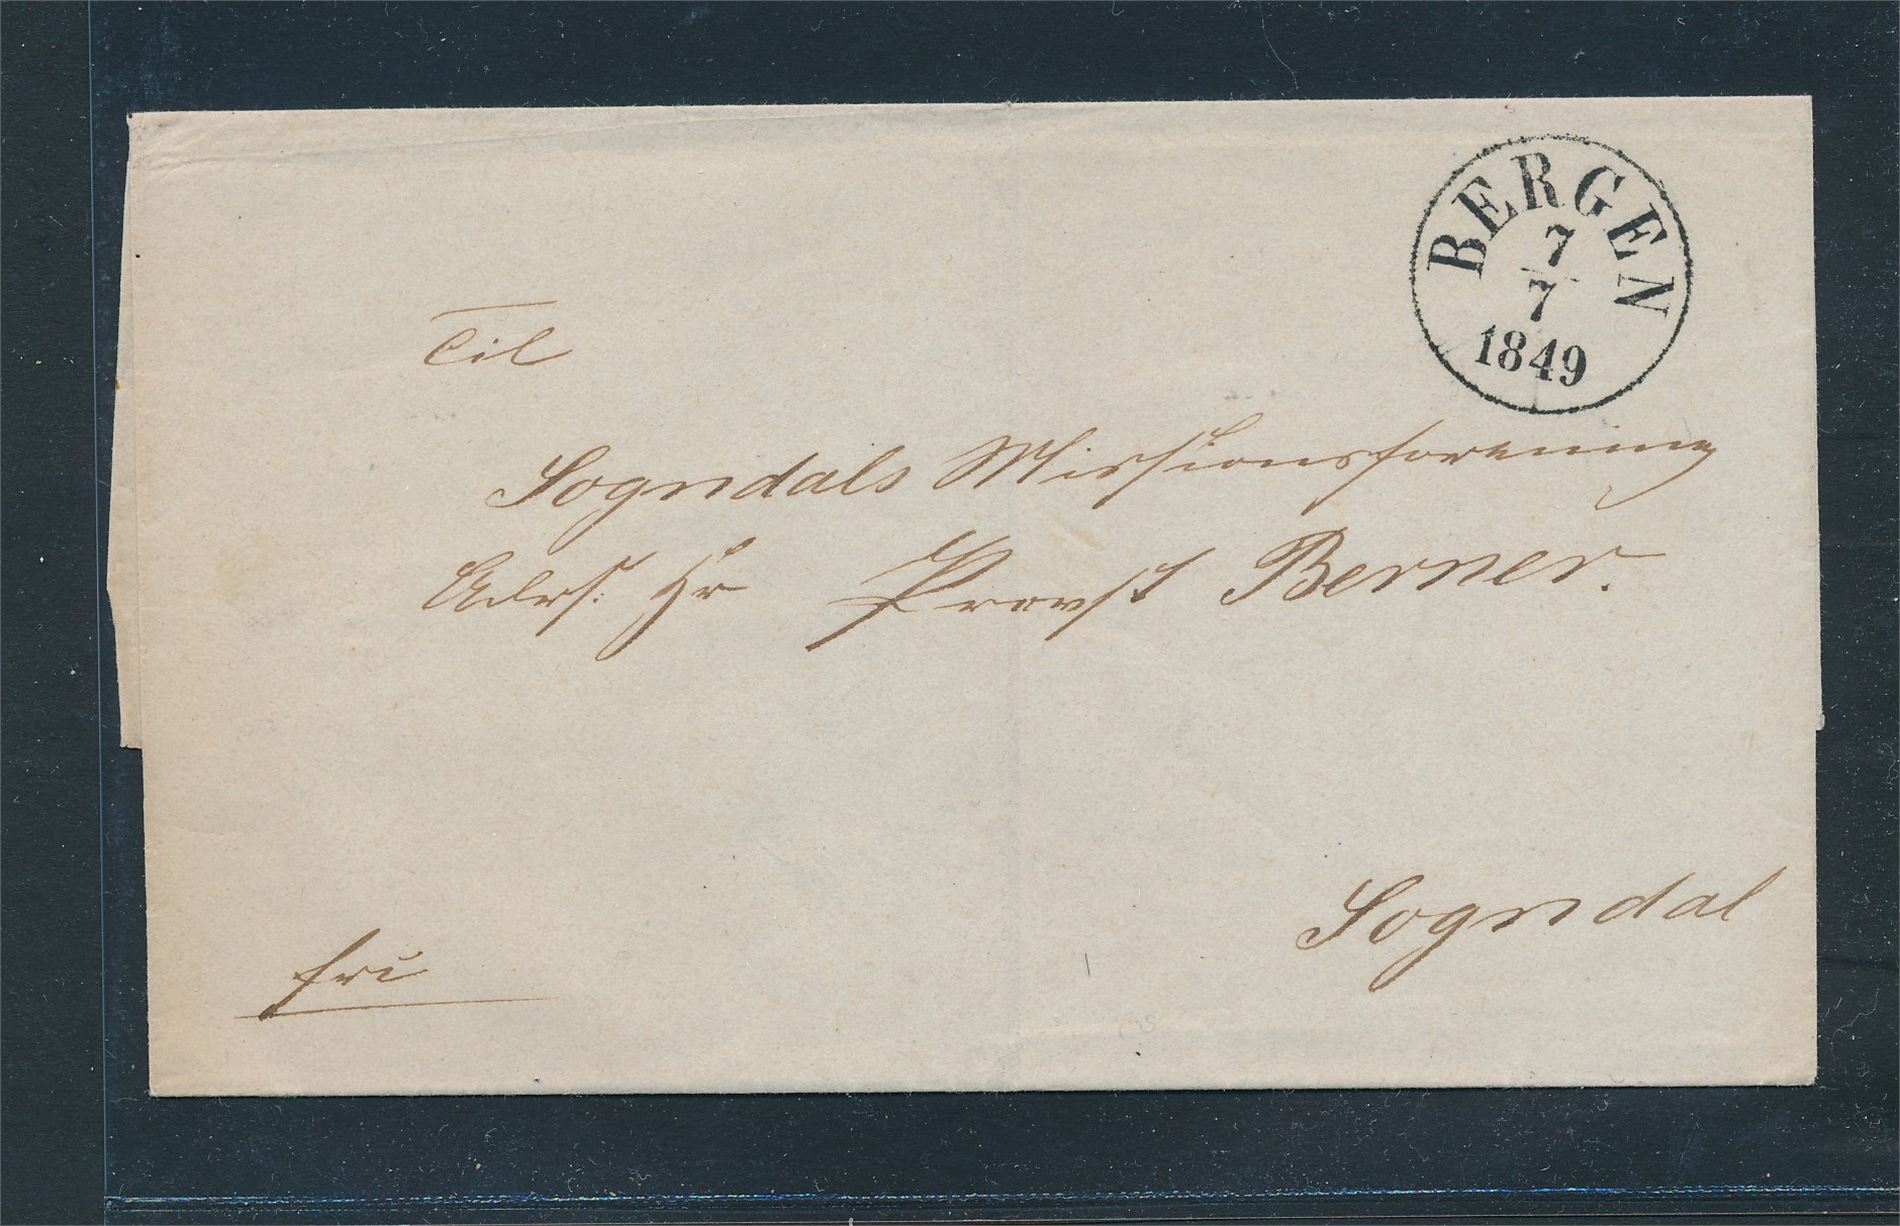 BERGEN
7
7
1849
Til
Sogndals Missionsforening
Adrs: Hr Provst Berner.
Sogndal
fri